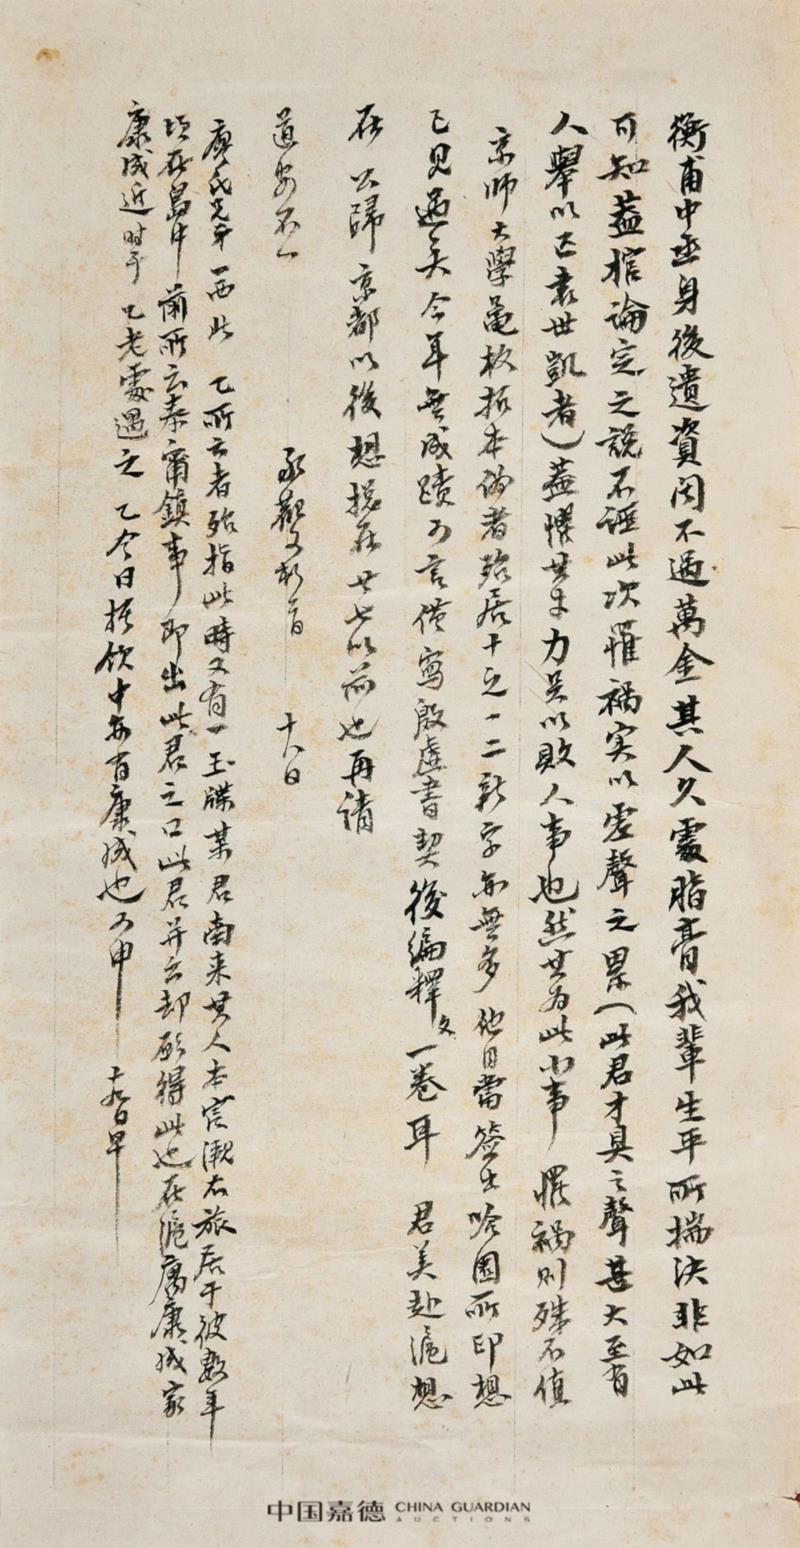 衡甫中丞身後遺資聞不過萬金其人久處脂膏我輩生平所揣決非如此
可知蓋棺論定之說不誣此次罹禍實以虛聲之累（此君才具之聲甚大至有
人舉以匹袁世凱者）蓋懼其才力足以敗人事也然其為此小事罹禍則殊不值
京師大學龜板拓本偽者殆居十之一二新字亦無多他日當簽出哈園所印想
已見過矣今年無成蹟可言僅寫殷虛書契後編釋文一卷耳 君美赴滬想
在公歸京都以後想總在廿七以前也再請
道安不一
永觀又頓首 十八日
廖氏光平一西此 乙所言者殆指此時又有一玉牒某君南來其人本宦浙右旅居于彼數年
頃在島中前所云泰甯鎮事即出此君之口此君并云却願得此也在滬寓康成家
康成近時于乙老處遇之 乙今日招飲中亦有康成也 又申 十九日早
中国嘉德 CHINA GUARDIAN
AUCTIONS